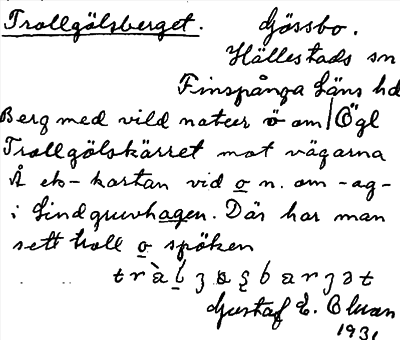 Trollgölsberget. Gössbo.
Hällestads sn
Finspånga Läns hd
Berg med vild natur ö om Ögl
Trollgölskärret mot vägarna
Å ek-kartan vid o n. om -ag-
i Lindgruvhagen. Där har man
sett troll o spöken
Gustaf E. Olsson
1931